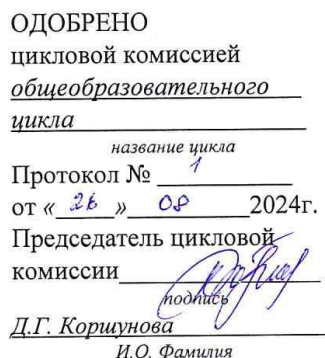 ОДОБРЕНО
цикловой комиссией
общеобразовательного
цикла
название цикла
Протокол № 1
от « 26 » 08 2024г.
Председатель цикловой
комиссии
подпись
Д.Г. Коршунова
И.О. Фамилия